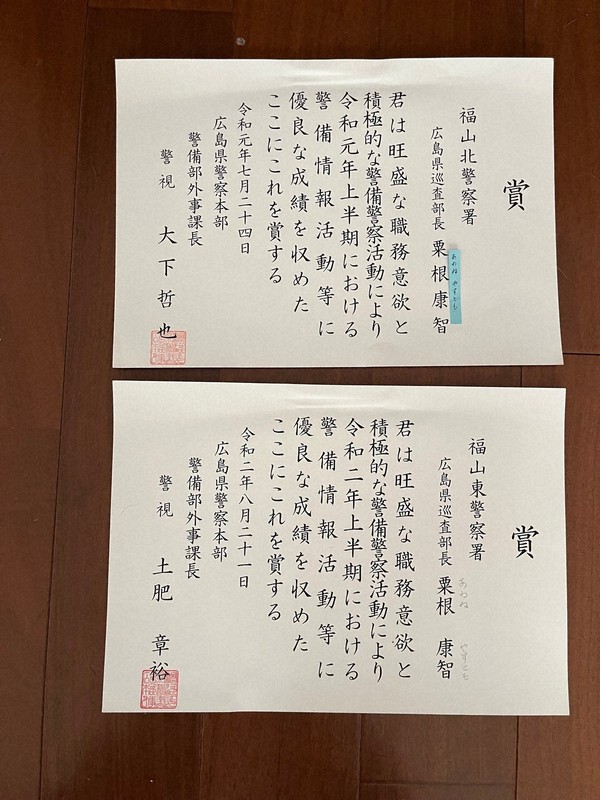 賞
福山北警察署
広島県巡査部長 粟根康智
あわね やすとも
君は旺盛な職務意欲と
積極的な警備警察活動により
令和元年上半期における
警備情報活動等に
優良な成績を収めた
ここにこれを賞する
令和元年七月二十四日
広島県警察本部
警備部外事課長
警視 大下哲也
賞
福山東警察署
広島県巡査部長 粟根 康智
あわね やすとも
君は旺盛な職務意欲と
積極的な警備警察活動により
令和二年上半期における
警備情報活動等に
優良な成績を収めた
ここにこれを賞する
令和二年八月二十一日
広島県警察本部
警備部外事課長
警視 土肥 章裕